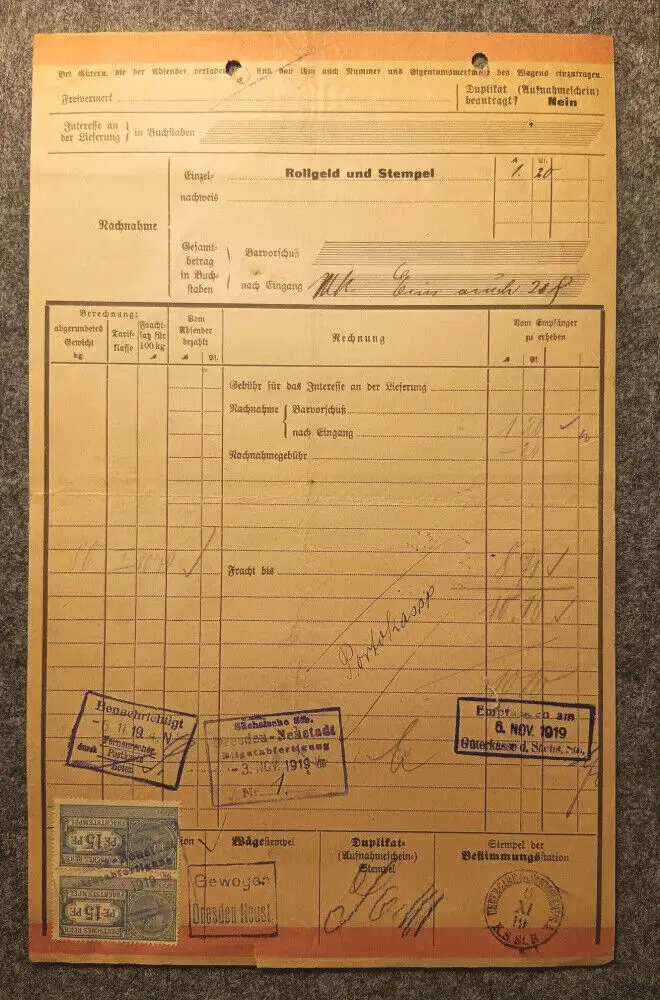 Bei Gütern, die der Absender verladen, sind von ihm auch Nummer und Eigentumsmerkmale des Wagens einzutragen.
Freivermerk
Duplikat (Aufnahmeschein)
beantragt? Nein
Interesse an
der Lieferung } in Buchstaben
Nachnahme
Einzel-
nachweis
Rollgeld und Stempel
1. 20
Gesamt-
betrag
in Buch-
staben
Barvorschuß
nach Eingang Mk Eins auch 20
Berechnung:
abgerundetes
Gewicht
kg
Tarif-
klasse
Fracht-
satz für
100 kg
Vom
Absender
bezahlt
Rechnung
Vom Empfänger
zu erheben
Gebühr für das Interesse an der Lieferung
Nachnahme { Barvorschuß
nach Eingang 1 20
Nachnahmegebühr - 20
Fracht bis
Portokasse
Benachrichtigt
durch
Fernsprecher
Postkarte
Boten
Sächsische Stb.
Dresden-Neustadt
Eilgutabfertigung
-3. NOV. 1919
Nr. 1.
Empfangen am
6. NOV. 1919
Güterkasse d. Sächs. Stb.
Wägestempel
Gewogen
Dresden Neust.
Duplikat-
(Aufnahmeschein-)
Stempel
Stempel der
Bestimmungsstation
K.S.St.B.
FRACHTSTEMPEL
15 PF
DEUTSCHES REICH
FRACHTSTEMPEL
15 PF
DEUTSCHES REICH